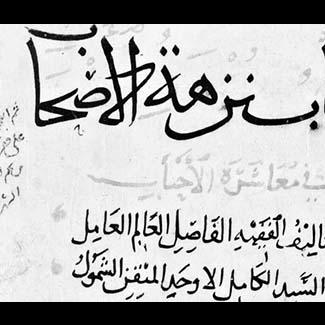 بنزهة الاصحاب
في معاشرة الأحباب
تاليف الفقيه الفاضل العالم العامل
السيد الكامل الاوحد المتقن الشمول